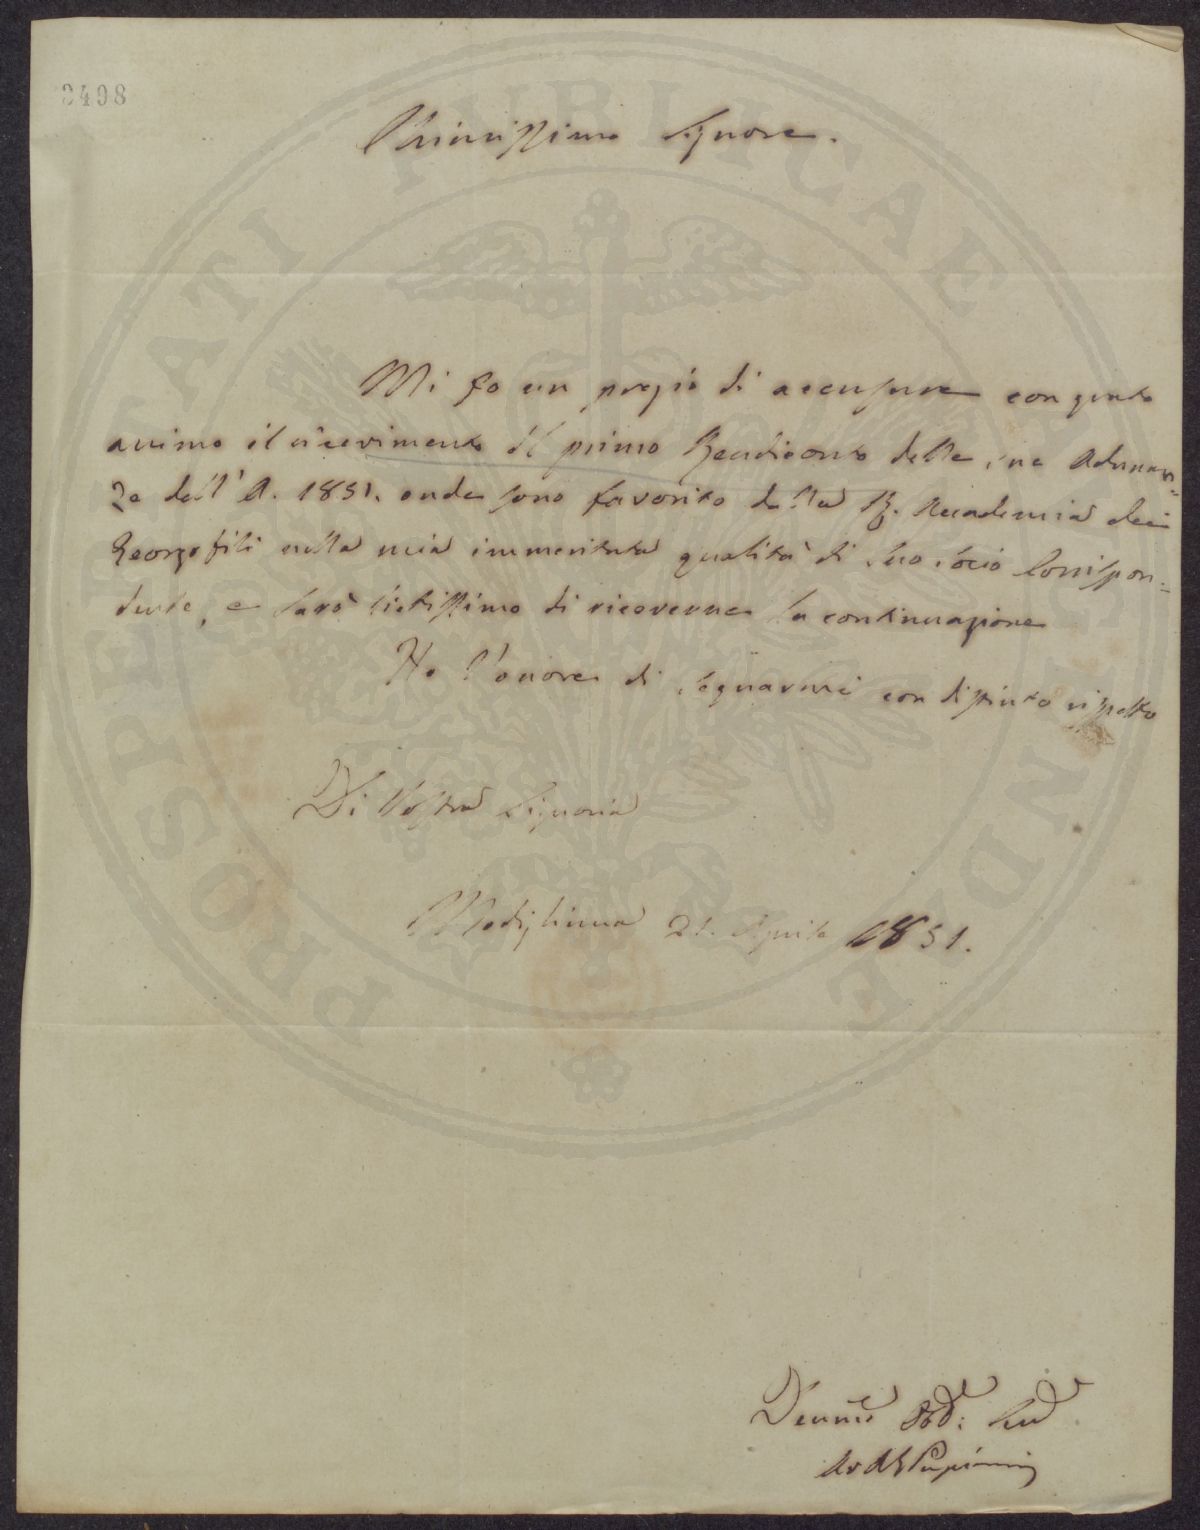 3498
Chiarissimo Signore.
Mi fo un pregio di accusare con grato
animo il ricevimento del primo Rendiconto delle sue Adunan=
ze dell' A. 1851. onde sono favorito dalla R. Accademia dei
Georgofili nella mia immeritata qualità di suo socio Corrispon=
dente, e sarò lietissimo di riceverne la continuazione
Ho l'onore di segnarmi con distinto rispetto
Di Vostra Signoria
Modigliana 21. Aprile 1851.
Devmo Obd: Ser
PROSPERITATI PUBLICAE AUGENDAE